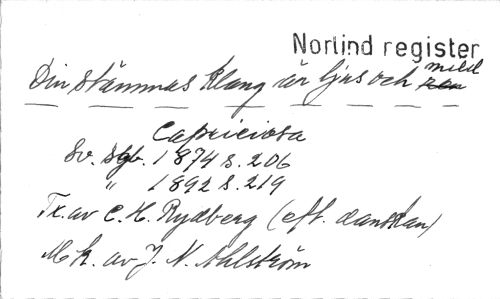 Norlind register
Din stämmas klang är ljus och mild
Capriciosa
Sv. sgb. 1874 s. 206
" 1892 s. 219
Tx. av C. H. Rydberg (eft. danskan)
Mk. av J. N. Ahlström